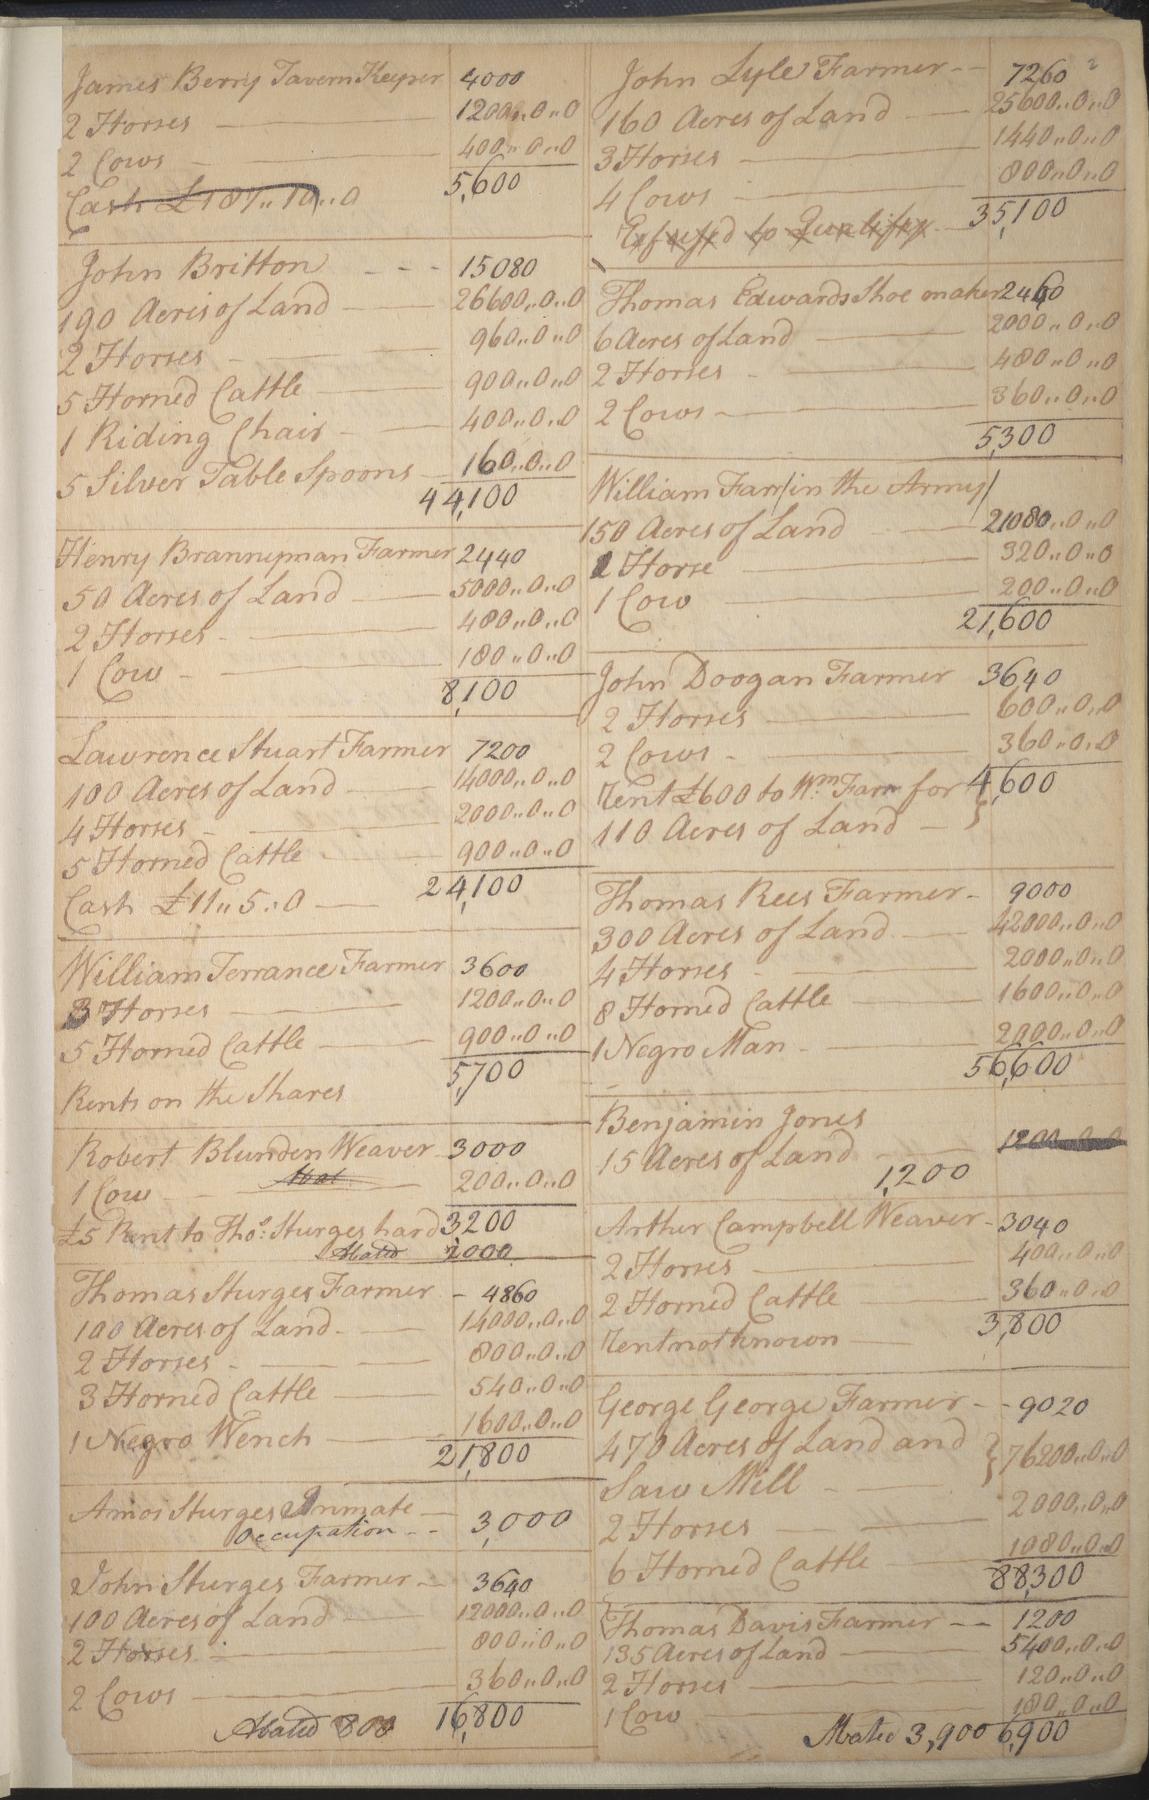 James Berry Tavern Keeper 4000
2 Horses 1200,,0,,0
2 Cows 400,,0,,0
Cash £187,,10,,0 5,600
John Britton 15080
190 Acres of Land 26600,,0,,0
2 Horses 960,,0,,0
5 Horned Cattle 900,,0,,0
1 Riding Chair 400,,0,,0
5 Silver Table Spoons 160,,0,,0
44,100
Henry Branneman Farmer 2440
50 Acres of Land 5000,,0,,0
2 Horses 480,,0,,0
1 Cow 180,,0,,0
8,100
Lawrence Stuart Farmer 7200
100 Acres of Land 14000,,0,,0
4 Horses 2000,,0,,0
5 Horned Cattle 900,,0,,0
Cash £11,,5,,0 24,100
William Terrance Farmer 3600
3 Horses 1200,,0,,0
5 Horned Cattle 900,,0,,0
5,700
Rents on the Shares
Robert Blunden Weaver 3000
1 Cow 200,,0,,0
£5 Rent to Thos. Sturges hard 3200
Abated 2000
Thomas Sturges Farmer 4860
100 Acres of Land 14000,,0,,0
2 Horses 800,,0,,0
3 Horned Cattle 540,,0,,0
1 Negro Wench 1600,,0,,0
21,800
Amos Sturges Inmate
Occupation 3,000
John Sturges Farmer 3640
100 Acres of Land 12000,,0,,0
2 Horses 800,,0,,0
2 Cows 360,,0,,0
Abated 800 16,800
2
John Lyle Farmer 7260
160 Acres of Land 25600,,0,,0
3 Horses 1440,,0,,0
4 Cows 800,,0,,0
Refused to Qualify 35,100
Thomas Edwards Shoe maker 2460
6 Acres of Land 2000,,0,,0
2 Horses 480,,0,,0
2 Cows 360,,0,,0
5,300
William Farr/in the Army/
150 Acres of Land 21080,,0,,0
1 Horse 320,,0,,0
1 Cow 200,,0,,0
21,600
John Doogan Farmer 3640
2 Horses 600,,0,,0
2 Cows 360,,0,,0
Rent £600 to Wm. Farr for 4,600
110 Acres of Land
Thomas Rees Farmer 9000
300 Acres of Land 42000,,0,,0
4 Horses 2000,,0,,0
8 Horned Cattle 1600,,0,,0
1 Negro Man 2000,,0,,0
56,600
Benjamin Jones
15 Acres of Land 1200,,0,,0
1,200
Arthur Campbell Weaver 3040
2 Horses 400,,0,,0
2 Horned Cattle 360,,0,,0
Rent not known 3,800
George George Farmer 9020
470 Acres of Land and
Saw Mill 76200,,0,,0
2 Horses 2000,,0,,0
6 Horned Cattle 1080,,0,,0
88,300
Thomas Davis Farmer 1200
135 Acres of Land 5400,,0,,0
2 Horses 120,,0,,0
1 Cow 180,,0,,0
Abated 3,900 6,900